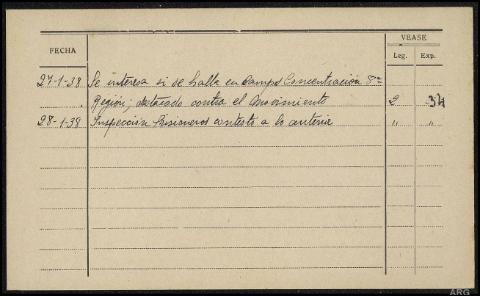 VEASE
FECHA Leg. Exp.
27-1-38 Se interesa si se halla en Campo Concentración 8ª
Region; destacado contra el Movimiento 2 34
28-1-38 Inspección Prisioneros contesta a lo anterior " "
ARG